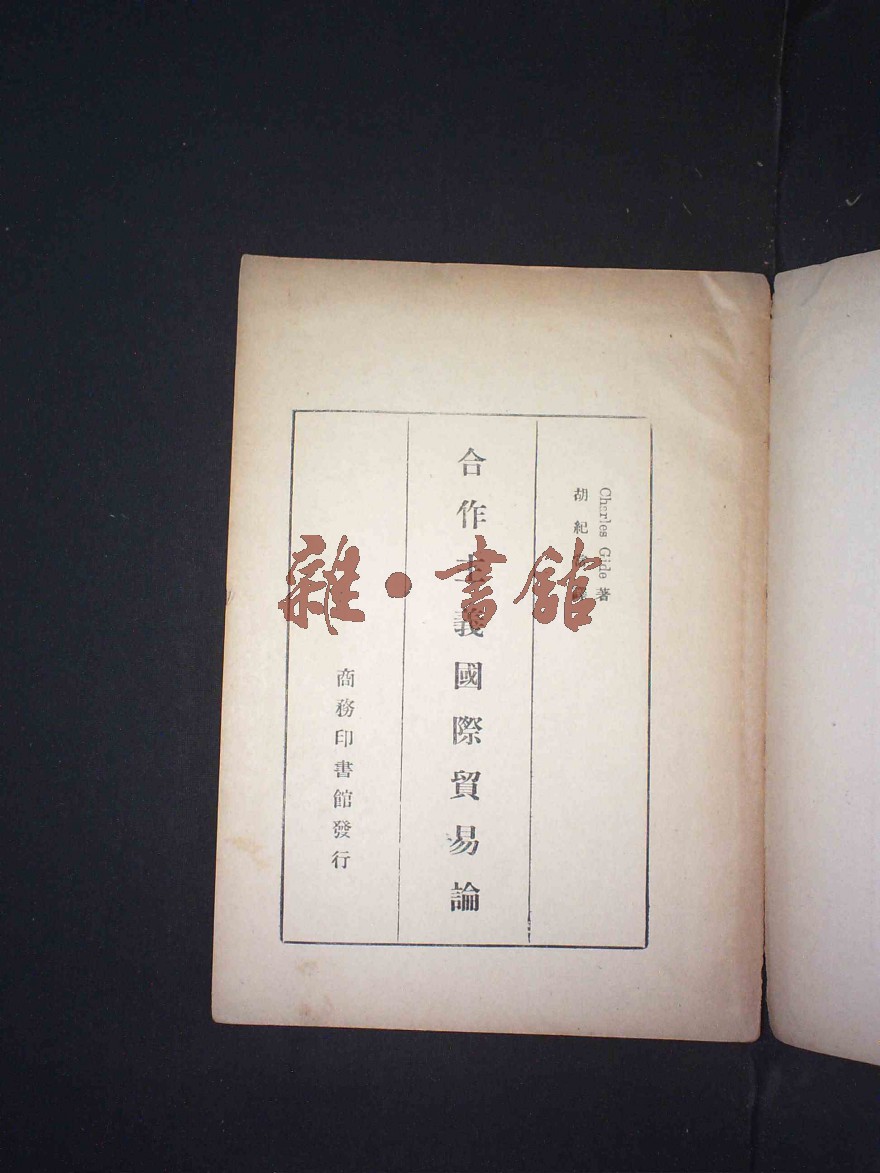 Charles Gide 著
胡紀
合作主義國際貿易論
商務印書館發行
雜·書館